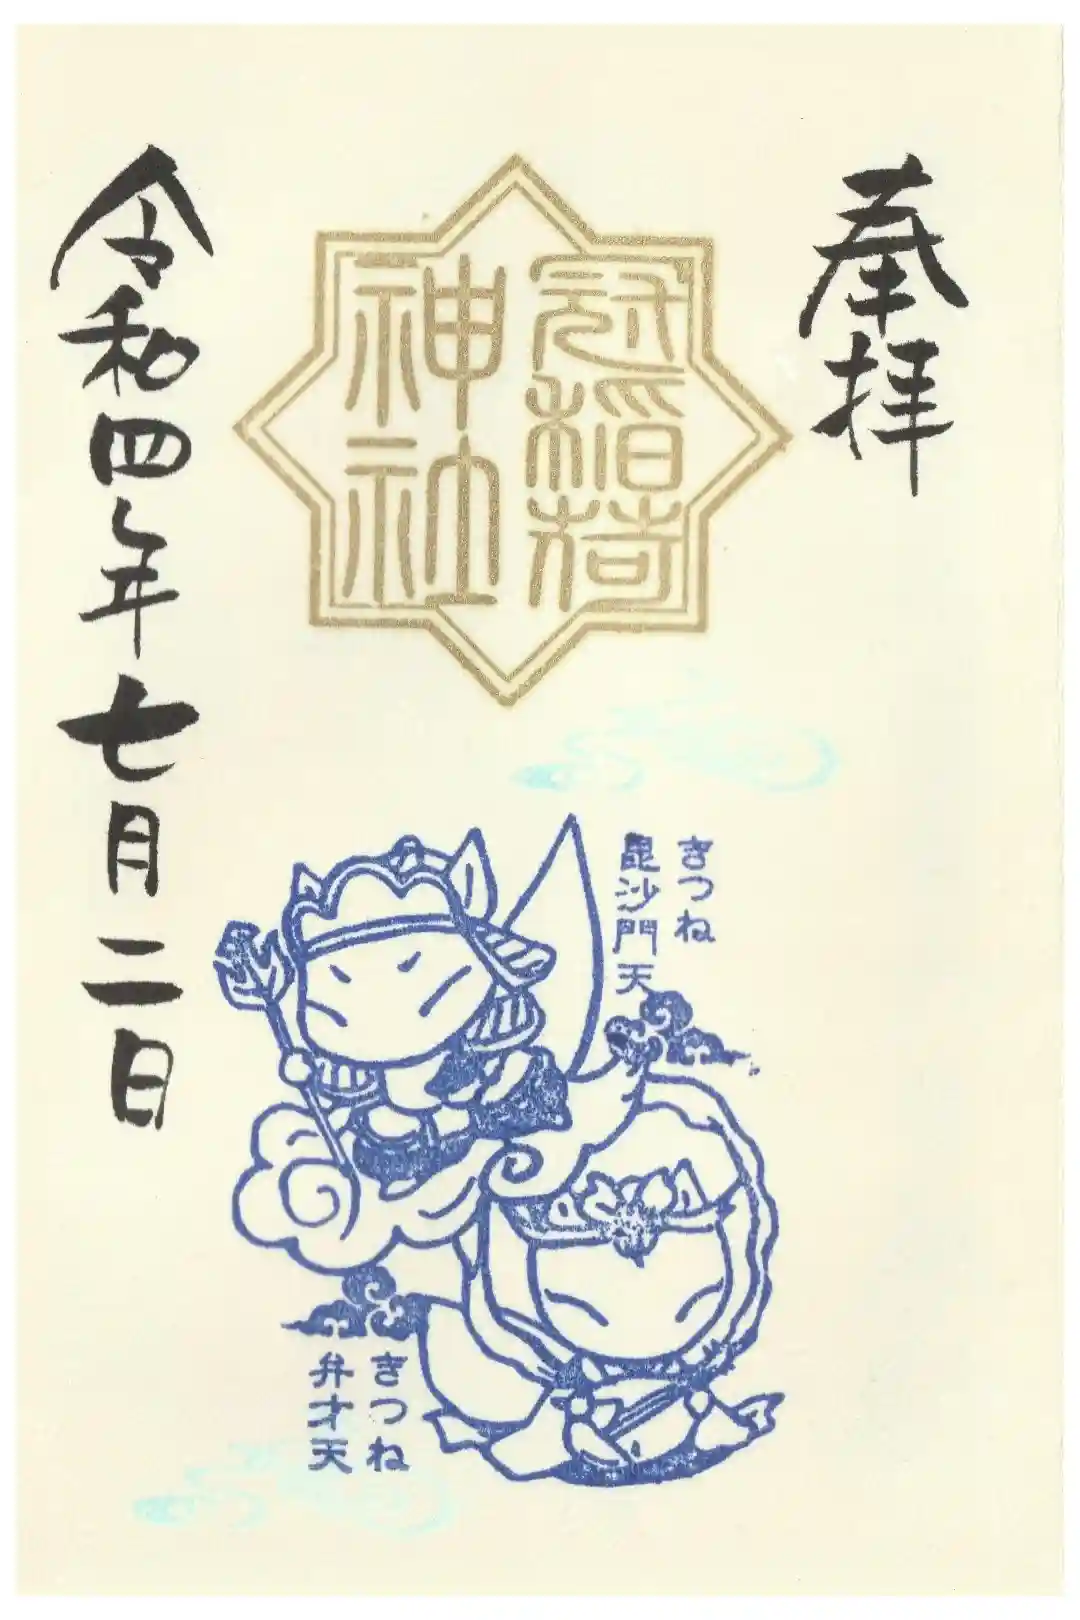 奉拝
冠稲荷
神社
令和四年七月二日
きつね
毘沙門天
きつね
弁才天